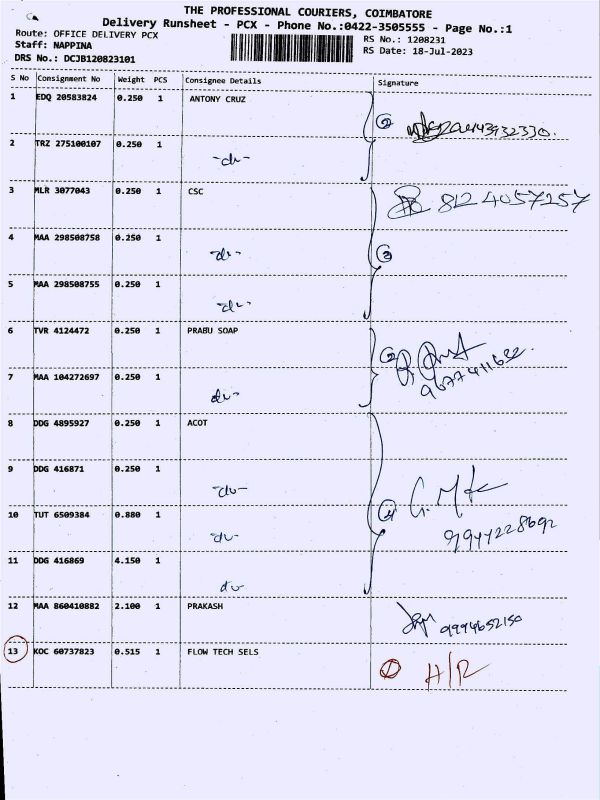 THE PROFESSIONAL COURIERS, COIMBATORE
Delivery Runsheet - PCX - Phone No.:0422-3505555 - Page No.:1
Route: OFFICE DELIVERY PCX
RS No.: 1208231
Staff: NAPPINA
RS Date: 18-Jul-2023
DRS No.: DCJB120823101
S No Consignment No Weight PCS Consignee Details Signature
1 EDQ 20583824 0.250 1 ANTONY CRUZ
2 TRZ 275100107 0.250 1 -do-
3 MLR 3077043 0.250 1 CSC 8124057257
4 MAA 298508758 0.250 1 -do-
5 MAA 298508755 0.250 1 -do-
6 TVR 4124472 0.250 1 PRABU SOAP
7 MAA 104272697 0.250 1 -do-
8 DDG 4895927 0.250 1 ACOT
9 DDG 416871 0.250 1 -do-
10 TUT 6509384 0.880 1 -do-
9947228692
11 DDG 416869 4.150 1 do-
12 MAA 860410882 2.100 1 PRAKASH 9994652150
13 KOC 60737823 0.515 1 FLOW TECH SELS 1 H/R